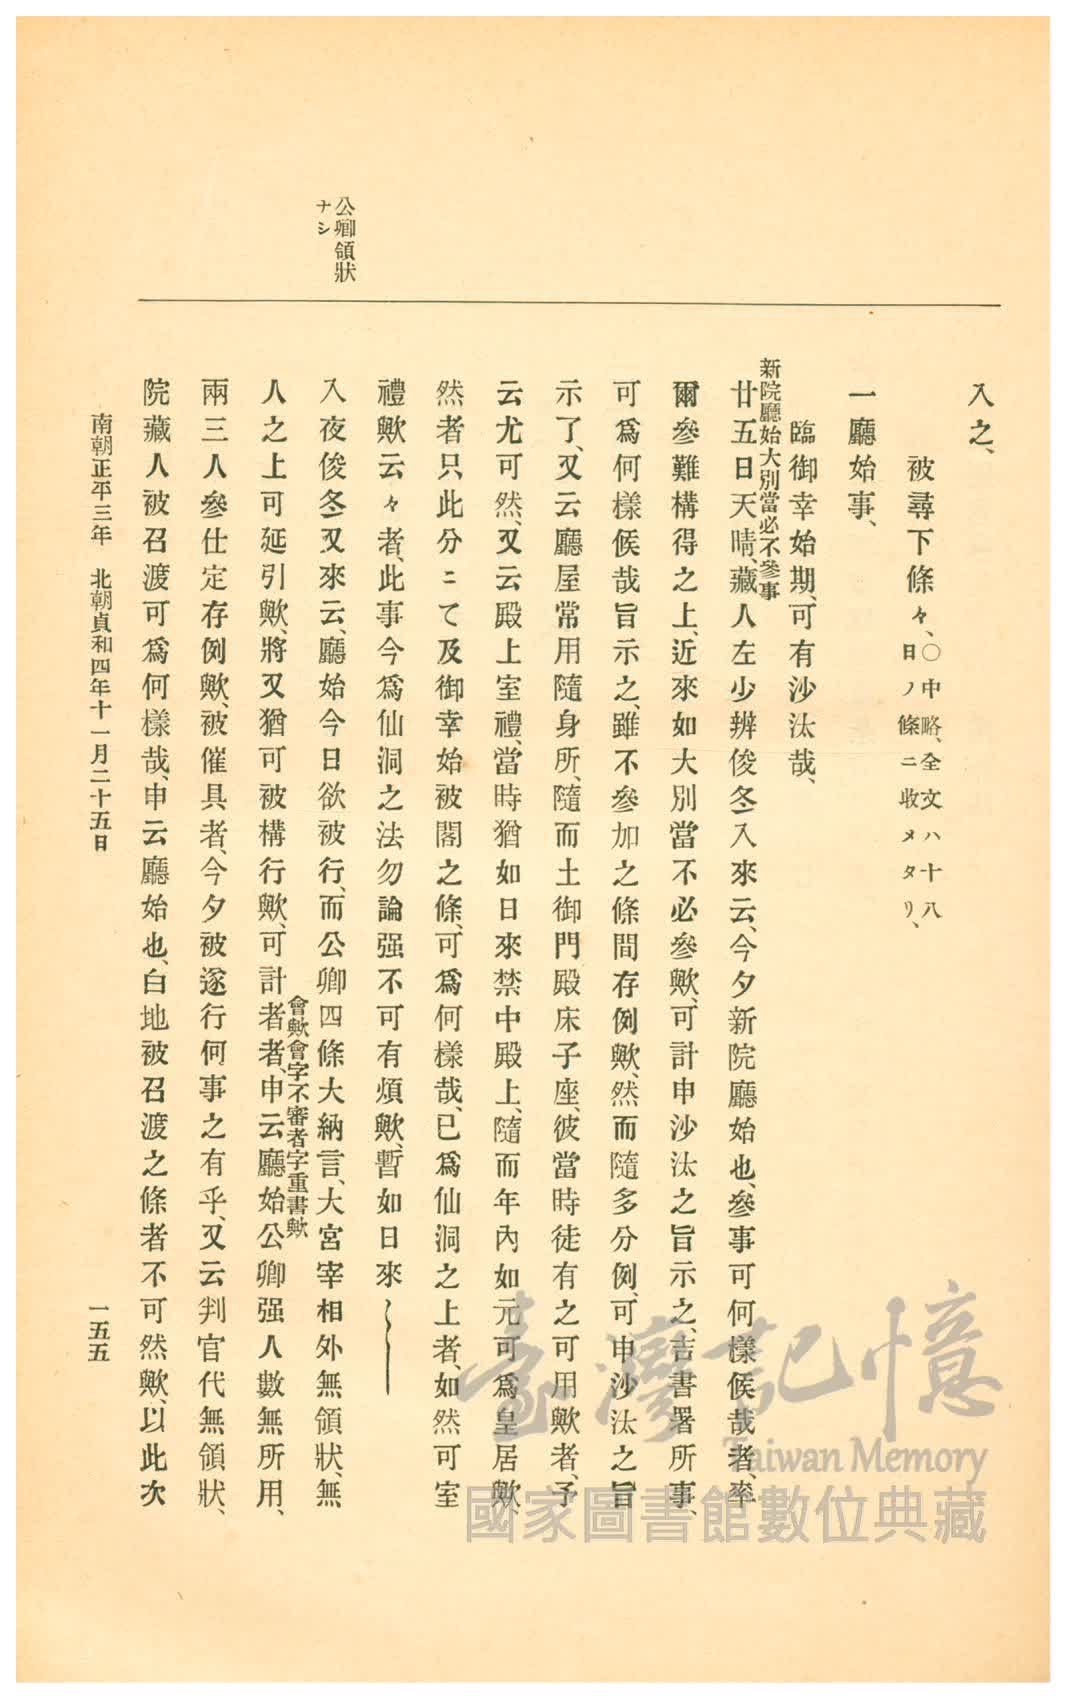 公卿領狀
ナシ
入之、
被尋下條々、〇中略、全文ハ十八
日ノ條ニ收メタリ、
一廳始事、
臨御幸始期、可有沙汰哉、
新院廳始大別當必不參事
廿五日天晴、藏人左少辨俊冬入來云、今夕新院廳始也、參事可何樣候哉者、率
爾參難構得之上、近來如大別當不必參歟、可計申沙汰之旨示之、吉書署所事、
可爲何樣候哉旨示之、雖不參加之條間存例歟、然而隨多分例、可申沙汰之旨
示了、又云廳屋常用隨身所、隨而土御門殿床子座、彼當時徒有之可用歟者、予
云尤可然、又云殿上室禮、當時猶如日來禁中殿上、隨而年內如元可爲皇居歟、
然者只此分ニて及御幸始被閣之條、可爲何樣哉、已爲仙洞之上者、如然可室
禮歟云々者、此事今爲仙洞之法勿論强不可有煩歟、暫如日來
入夜俊冬又來云、廳始今日欲被行、而公卿四條大納言、大宮宰相外無領狀、無
會歟會字不審者字重書歟
人之上可延引歟、將又猶可被構行歟、可計者者、申云廳始公卿强人數無所用、
兩三人參仕定存例歟、被催具者、今夕被遂行何事之有乎、又云判官代無領狀、
院藏人被召渡可爲何樣哉、申云廳始也、白地被召渡之條者不可然歟、以此次
南朝正平三年　北朝貞和四年十一月二十五日
一五五
臺灣記憶
Taiwan Memory
國家圖書館數位典藏